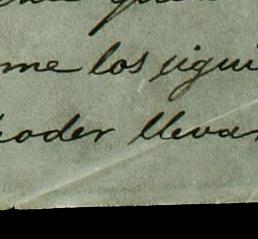 me los sigui
poder llevar